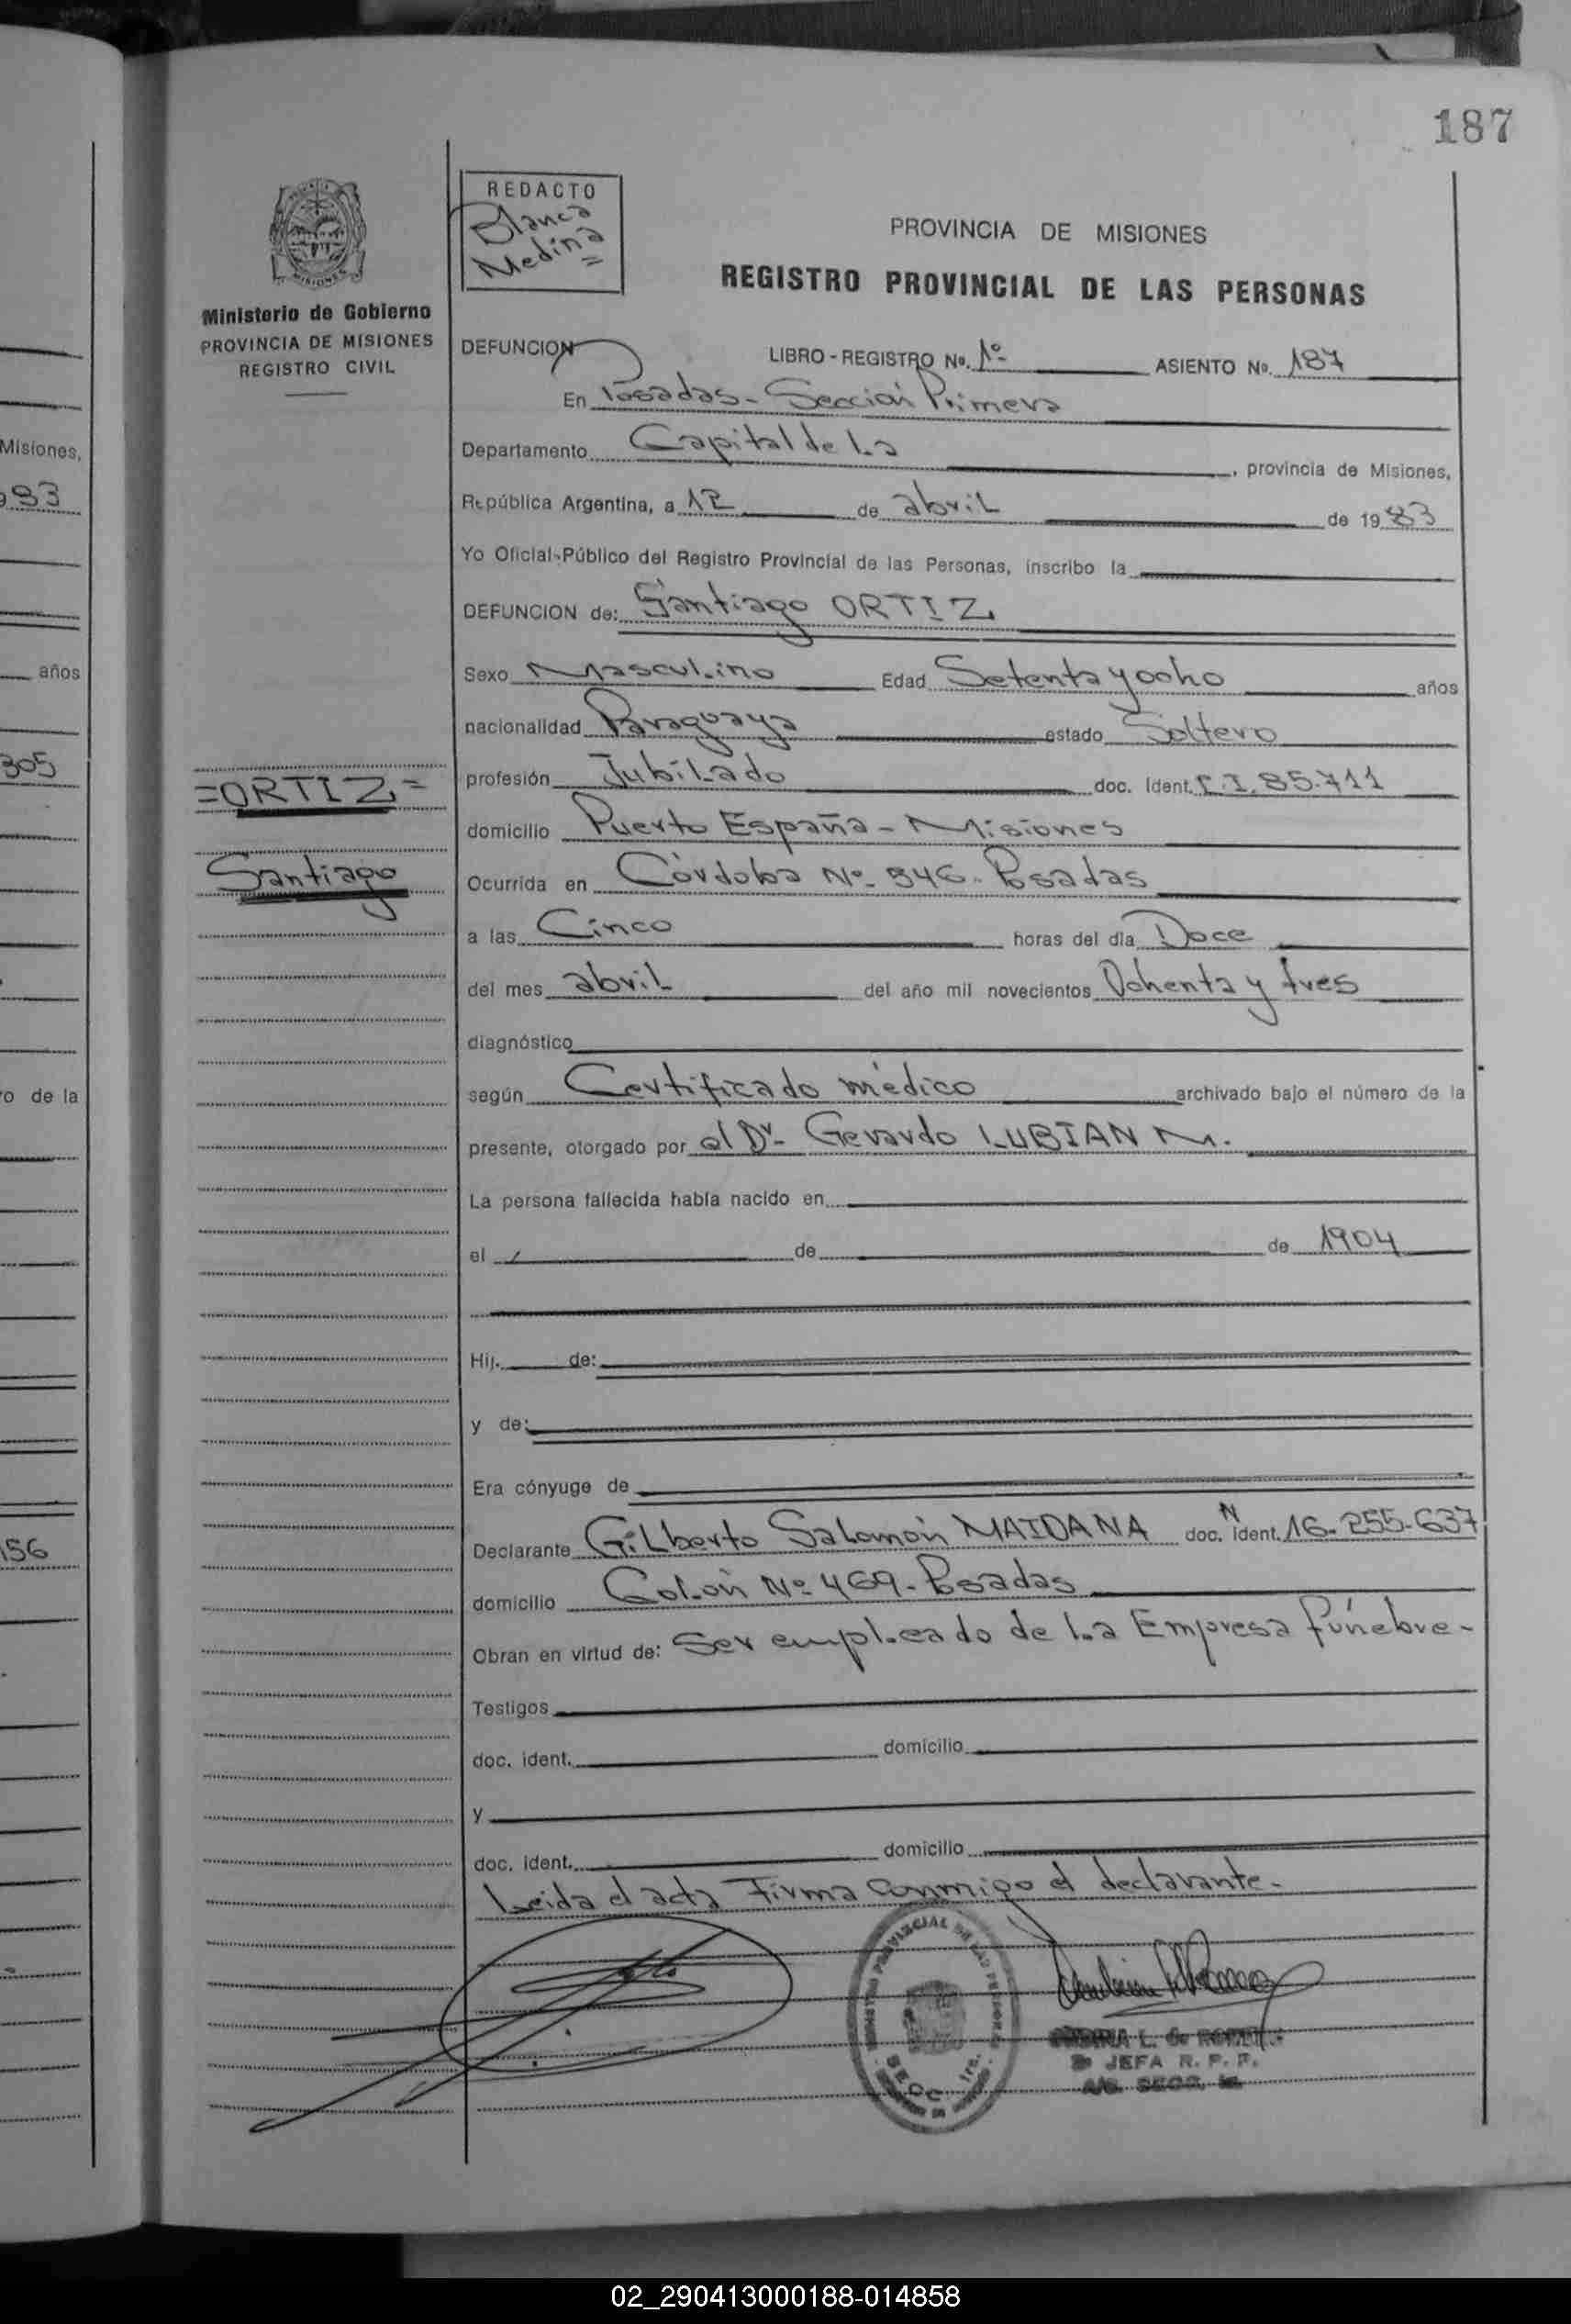 187
REDACTO
Blanca
Medina
PROVINCIA DE MISIONES
REGISTRO PROVINCIAL DE LAS PERSONAS
MISIONES
Ministerio de Gobierno
PROVINCIA DE MISIONES
REGISTRO CIVIL
DEFUNCION LIBRO - REGISTRO No. 1º ASIENTO No. 187
En Posadas - Sección Primera
Departamento Capital de la , provincia de Misiones,
República Argentina, a 12 de abril de 1983
Yo Oficial-Público del Registro Provincial de las Personas, inscribo la
DEFUNCION de: Santiago ORTIZ
Sexo Masculino Edad Setenta y ocho años
nacionalidad Paraguaya estado Soltero
=ORTIZ=
Santiago
profesión Jubilado doc. ident. C.I. 85.711
domicilio Puerto España - Misiones
Ocurrida en Córdoba Nº 946 - Posadas
a las Cinco horas del día Doce
del mes abril del año mil novecientos Ochenta y tres
diagnóstico
según Certificado médico archivado bajo el número de la
presente, otorgado por el Dr. Gerardo LUBIAN M.
La persona fallecida había nacido en
el de de 1904
Hij. de:
y de:
Era cónyuge de
Declarante Gilberto Salomón MAIDANA doc. N ident. 16.255.637
domicilio Colón Nº 469 - Posadas
Obran en virtud de: Ser empleado de la Empresa fúnebre -
Testigos
doc. ident. domicilio
y
doc. ident. domicilio
Leida el acta Firma conmigo el declarante.
REGISTRO PROVINCIAL DE LAS PERSONAS
SECC. 1ra.
JEFA R. P. P.
Misiones,
983
años
305
o de la
156
02_290413000188-014858